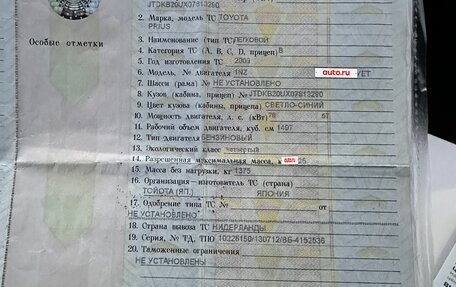 JTDKB20UX07813290
2. Марка, модель ТС TOYOTA
PRIUS
Особые отметки
3. Наименование (тип ТС) ЛЕГКОВОЙ
4. Категория ТС (A, B, C, D, прицеп) B
5. Год изготовления ТС 2009
6. Модель, № двигателя 1NZ auto.ru
7. Шасси (рама) № НЕ УСТАНОВЛЕНО
8. Кузов (кабина, прицеп) № JTDKB20UX07813290
9. Цвет кузова (кабины, прицепа) СВЕТЛО-СИНИЙ
10. Мощность двигателя, л. с. (кВт) 78 57
11. Рабочий объем двигателя, куб. см 1497
12. Тип двигателя БЕНЗИНОВЫЙ
13. Экологический класс четвертый
14. Разрешенная максимальная масса, к auto.ru
15. Масса без нагрузки, кг 1375
16. Организация—изготовитель ТС (страна)
ТОЙОТА (ЯП.) ЯПОНИЯ
17. Одобрение типа ТС № от
НЕ УСТАНОВЛЕНО
18. Страна вывоза ТС НИДЕРЛАНДЫ
19. Серия, № ТД, ТПО 10226150/130712/ВБ-4152536
20. Таможенные ограничения
НЕ УСТАНОВЛЕНЫ